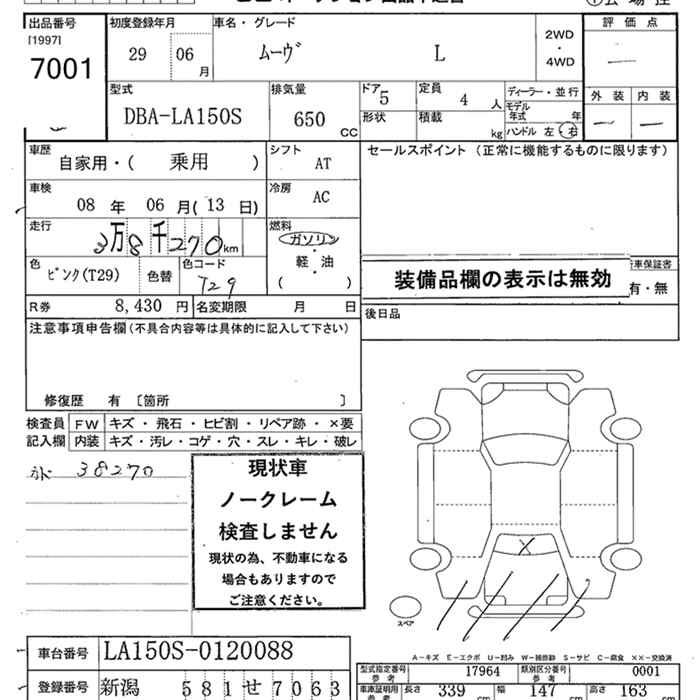 出品番号
[1997]
7001
初度登録年月
29 06 月
車名・グレード
ムーヴ L
2WD
・
4WD
評価点
型式
DBA-LA150S
排気量
650 CC
ドア 5
定員 4 人
形状
積載 kg
ディーラー・並行
モデル年式 年
ハンドル 左・右
外装 内装
車歴
自家用・( 乗用 )
シフト AT
セールスポイント (正常に機能するものに限ります)
車検
08 年 06 月 ( 13 日)
冷房 AC
走行
3万8千270 km
燃料
ガソリン
軽・油
( )
色
ピンク(T29)
色替
色コード
T29
装備品欄の表示は無効
車保証書
有・無
R券 8,430 円
名変期限 月 日
後日品
注意事項申告欄(不具合内容等は具体的に記入して下さい)
修復歴 有 〔箇所 〕
検査員 FW キズ・飛石・ヒビ割・リペア跡・×要
記入欄 内装 キズ・汚レ・コゲ・穴・スレ・キレ・破レ
38270
現状車
ノークレーム
検査しません
現状の為、不動車になる
場合もありますので
ご注意ください。
スペア
A−キズ E−エクボ U−凹み W−補修跡 S−サビ C−腐食 ××−交換済
車台番号 LA150S-0120088
型式指定番号 参考 17964
類別区分番号 参考 0001
登録番号 新潟 581せ7063
車庫証明用 参考 長さ 339 cm 幅 147 cm 高さ 163 cm